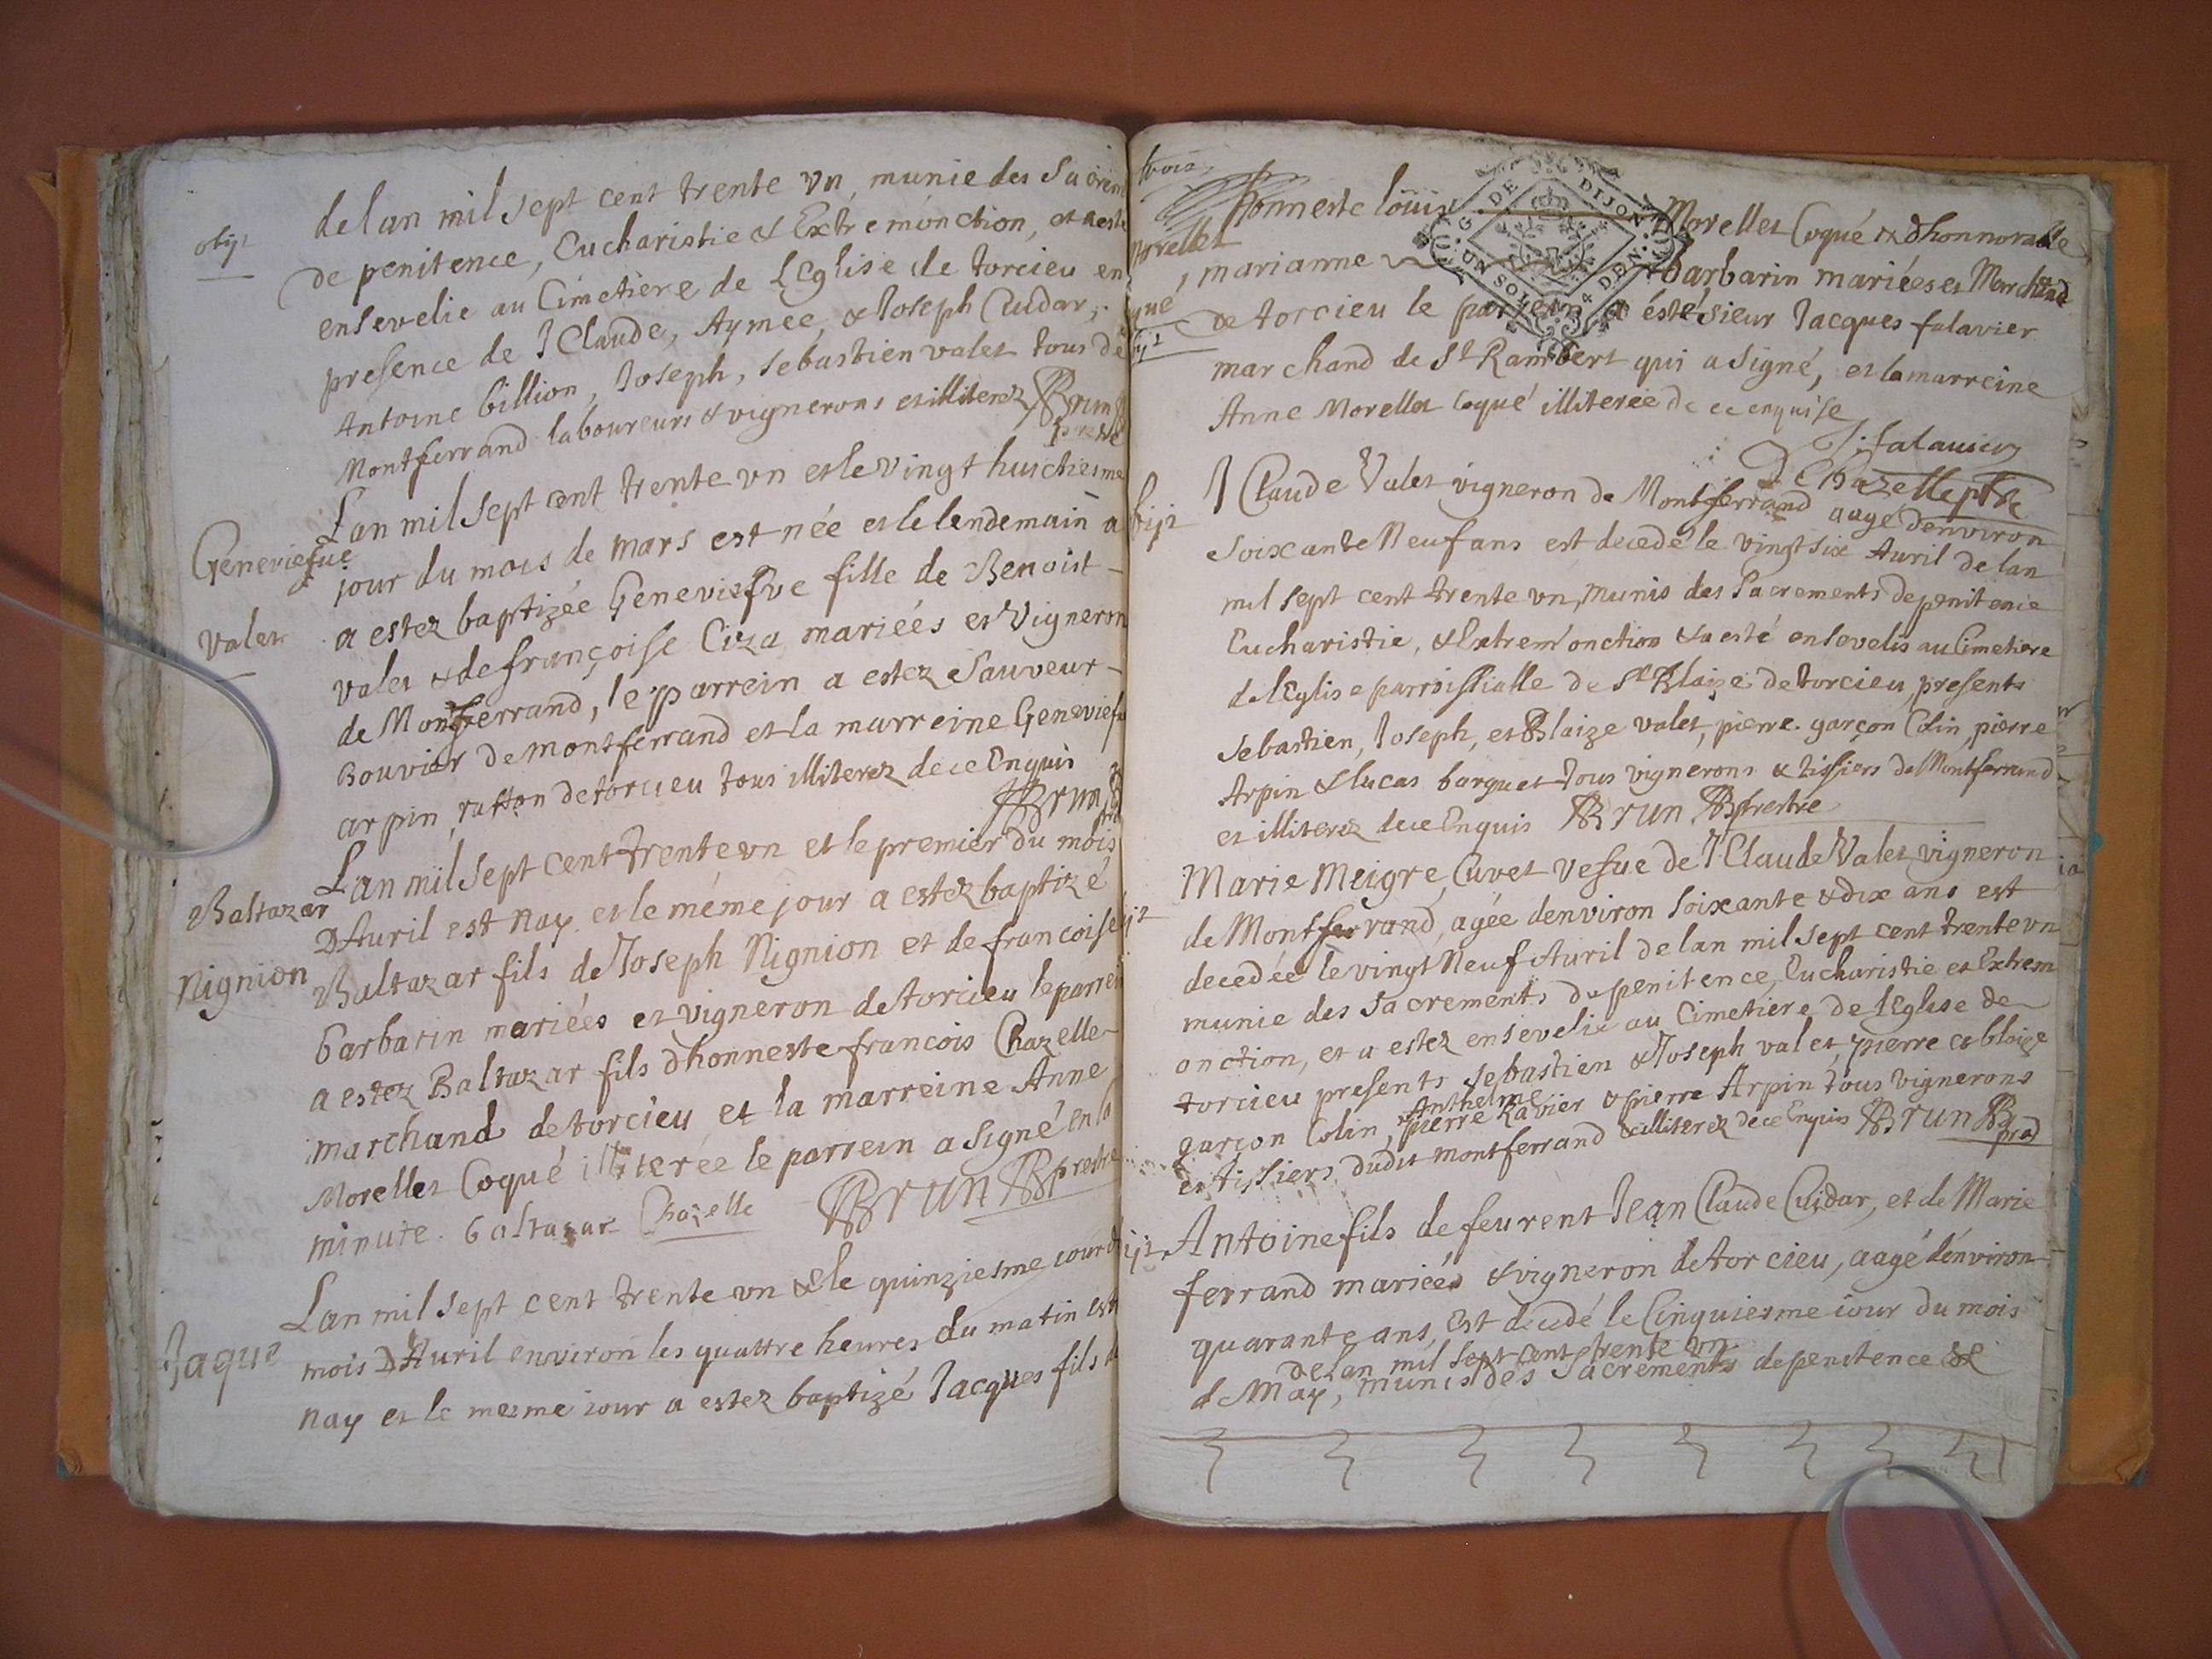 obijt
delan mil sept cent trente vn, munie des Sacrem
de penitence, Eucharistie & Extremónction, et a esté
ensevelie au Cimetière de LEglise de torcieu en
presence de J Claude, Aymée, & Joseph Cuidar,
Antoine billion, Joseph, sebastien valet tous de
Montferrand laboureurs & vignerons et illiterez Brun
prestre
Lan mil sept cent trente vn et le vingt huictiesme
Geneviefue
jour du mois de mars est née et le lendemain a
a estez baptizée Geneviefve fille de Benoist
valet
valet & de françoise Ciza mariéés et Vigneron
de Montferrand, le parrein a estez Sauveur
Bouvier de montferrand et la marreine Geneviefu
arpin ruffon de torcieu tous illiterez de ce Enquis
Brun
Lan mil sept cent trente vn et le premier du mois
Baltazar
DAuril est nay et le méme jour a estez baptizé
Nignion
Baltazar fils de Joseph Nignion et de francoise
barbarin mariéés et vigneron de torcieu le parrein
a estez Baltazar fils dhonneste francois Chazelle
marchand de torcieu et la marreine Anne
Morellet Coqué illiterée le parrein a signé en la
minute. baltazar Chazelle BRUN prestre
Lan mil sept cent trente vn & le quinziesme jour du
Jaque
mois DAuril environ les quattre heures du matin est
nay et le mesme iour a estez baptizé Jacques fils d
trois
G. DE DIJON
UN SOL 4 DDN.
honneste loüis Morellet Coqué & dhonnorable
Morellet
marianne barbarin mariées et Marchand
qué
de torcieu le parrein a ésté sieur Jacques falavier
marchand de St Rambert qui a signé, et la marreine
Anne Morellet Coqué illiterée de ce enquise
J. falavier
Chazelle ptre
obijt
J Claude Valet vigneron de Montferrand aagé denviron
soixante Neuf ans est decedé le vingt six Auril de lan
mil sept cent trente vn, munis des Sacrements de penitence
Eucharistie, & Extrem'onction & a esté ensevelis au Cimetiere
de lEglise parroissialle de St Blaize de torcieu, presents
Sebastien, Joseph, et Blaize valet, pierre garçon Colin, pierre
Arpin & lucas barquet tous vignerons & tissiers de Montferrand
et illiterez de ce Enquis BRUN prestre
Marie Meigre Cuvet vefue de J Claude Valet vigneron
de Montferrand, agée denviron soixante & dix ans est
decedée le vingt Neuf Auril de lan mil sept cent trente vn
munie des Sacrements de penitence, Eucharistie et Extrem
onction, et a estez ensevelie au Cimetiere de lEglise de
torcieu presents Sebastien & Joseph valet, pierre et blaize
garçon Colin, Anthelme pierre Ravier & pierre Arpin tous vignerons
et tissiers dudit montferrand & illiterez de ce Enquis BRUN
Antoine fils de feu rent Jean Claude Cuidar, et de Marie
ferrand mariées & vigneron de torcieu, aagé dénviron
quarante ans, Est decedé le Cinquiesme iour du mois
de lan mil sept cent trente vn
de May, munis des Sacrements de penitence &